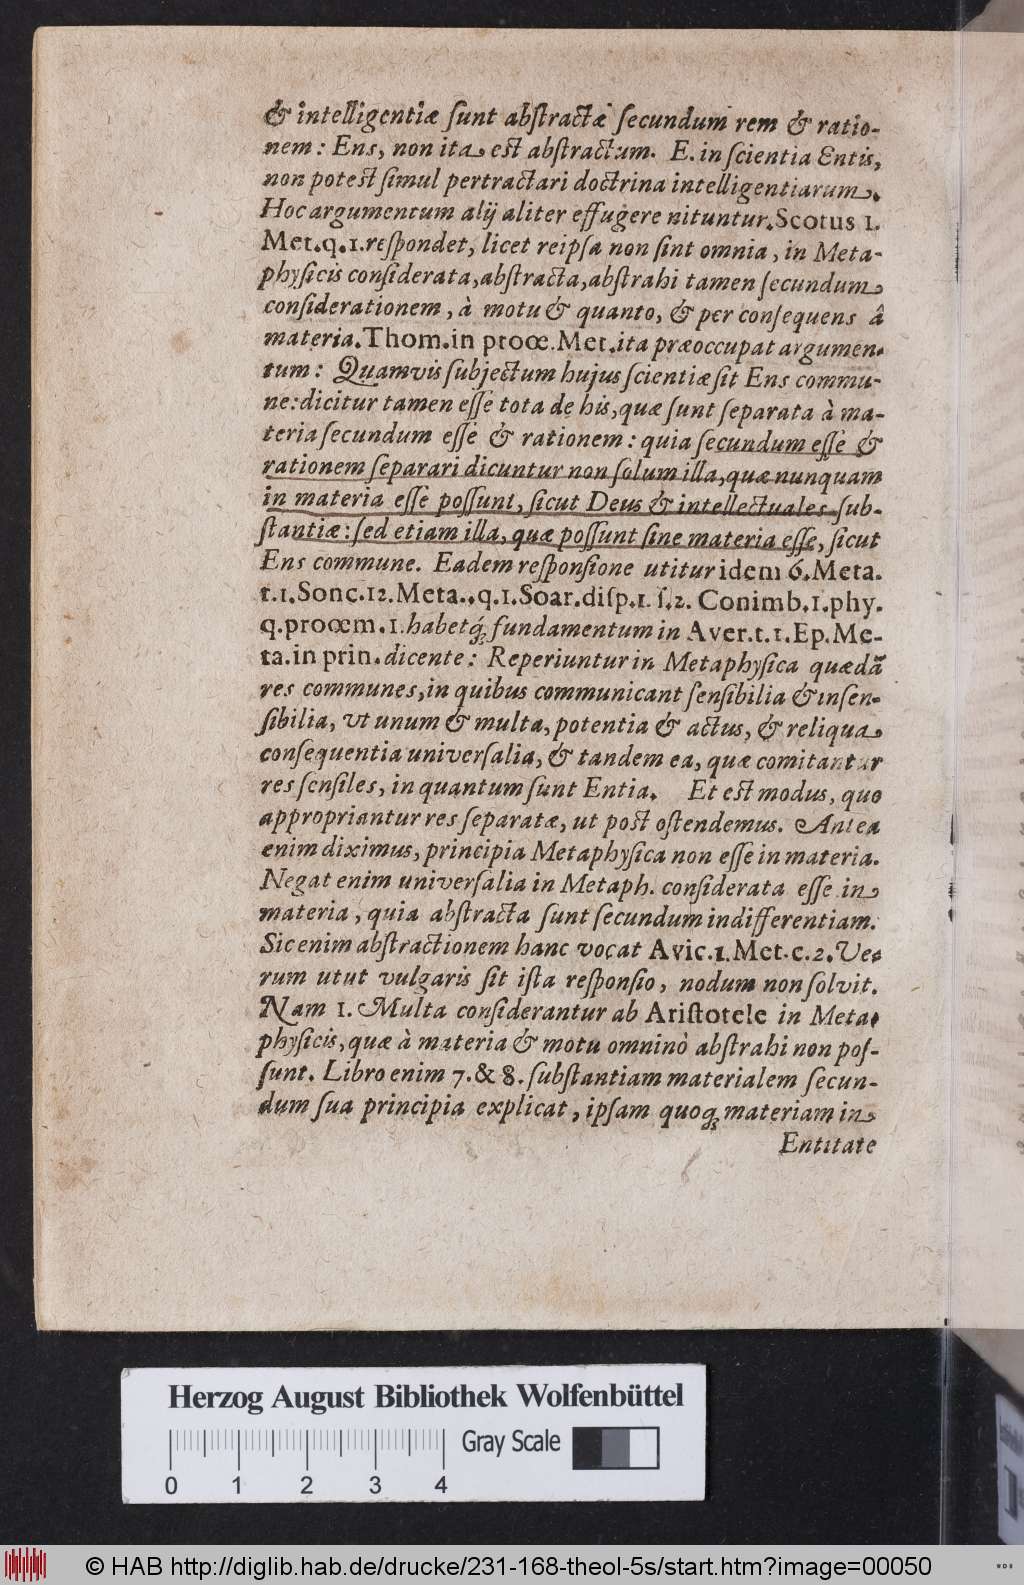 & intelligentiæ ſunt abſtractæ ſecundum rem & ratio-
nem: Ens, non ita est abſtractum. E. in ſcientia Entis,
non potest ſimul pertractari doctrina intelligentiarum.
Hoc argumentum alij aliter effugere nituntur. Scotus 1.
Met. q. 1. reſpondet, licet reipſa non ſint omnia, in Meta-
phyſicis conſiderata, abſtracta, abſtrahi tamen ſecundum
conſiderationem, à motu & quanto, & per conſequens â
materia. Thom. in proœ. Met. ita præoccupat argumen-
tum: Quamvis ſubjectum hujus ſcientiæ ſit Ens commu-
ne: dicitur tamen eſſe tota de his, quæ ſunt ſeparata à ma-
teria ſecundum eſſe & rationem: quia ſecundum eſſe &
rationem ſeparari dicuntur non ſolum illa, quæ nunquam
in materia eſſe poſſunt, ſicut Deus & intellectuales ſub-
ſtantiæ: ſed etiam illa, quæ poſſunt ſine materia eſſe, ſicut
Ens commune. Eadem reſponſione utitur idem 6. Meta.
t. 1. Sonc. 12. Meta., q. 1. Soar. diſp. 1. ſ. 2. Conimb. 1. phy.
q. proœm. 1. habetq́; fundamentum in Aver. t. 1. Ep. Me-
ta. in prin. dicente: Reperiuntur in Metaphyſica quædā
res communes, in quibus communicant ſenſibilia & inſen-
ſibilia, vt unum & multa, potentia & actus, & reliqua
conſequentia univerſalia, & tandem ea, quæ comitantur
res ſenſiles, in quantum ſunt Entia. Et est modus, quo
appropriantur res ſeparatæ, ut post oſtendemus. Antea
enim diximus, principia Metaphyſica non eſſe in materia.
Negat enim univerſalia in Metaph. conſiderata eſſe in
materia, quia abſtracta ſunt ſecundum indifferentiam.
Sic enim abſtractionem hanc vocat Avic. 1. Met. c. 2. Ve-
rum utut vulgaris ſit iſta reſponſio, nodum non ſolvit.
Nam 1. Multa conſiderantur ab Ariſtotele in Meta-
phyſicis, quæ à materia & motu omninò abſtrahi non poſ-
ſunt. Libro enim 7. & 8. ſubſtantiam materialem ſecun-
dum ſua principia explicat, ipſam quoq; materiam in
Entitate
Herzog August Bibliothek Wolfenbüttel
Gray Scale
0 1 2 3 4
© HAB http://diglib.hab.de/drucke/231-168-theol-5s/start.htm?image=00050